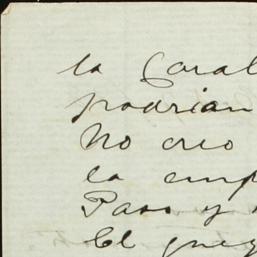 la Coral
podrian
No creo
la emp
Paso y
El juez